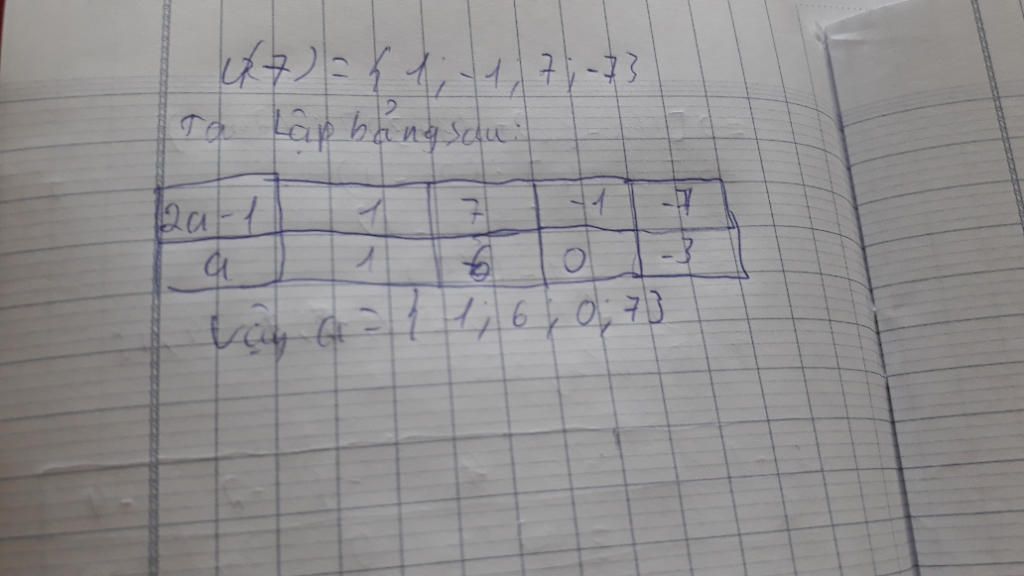 Ư(7) = { 1; -1; 7; -7}
Ta lập bảng sau:
2a-1 1 7 -1 -7
a 1 6 0 -3
Vậy a = { 1; 6; 0; 7}